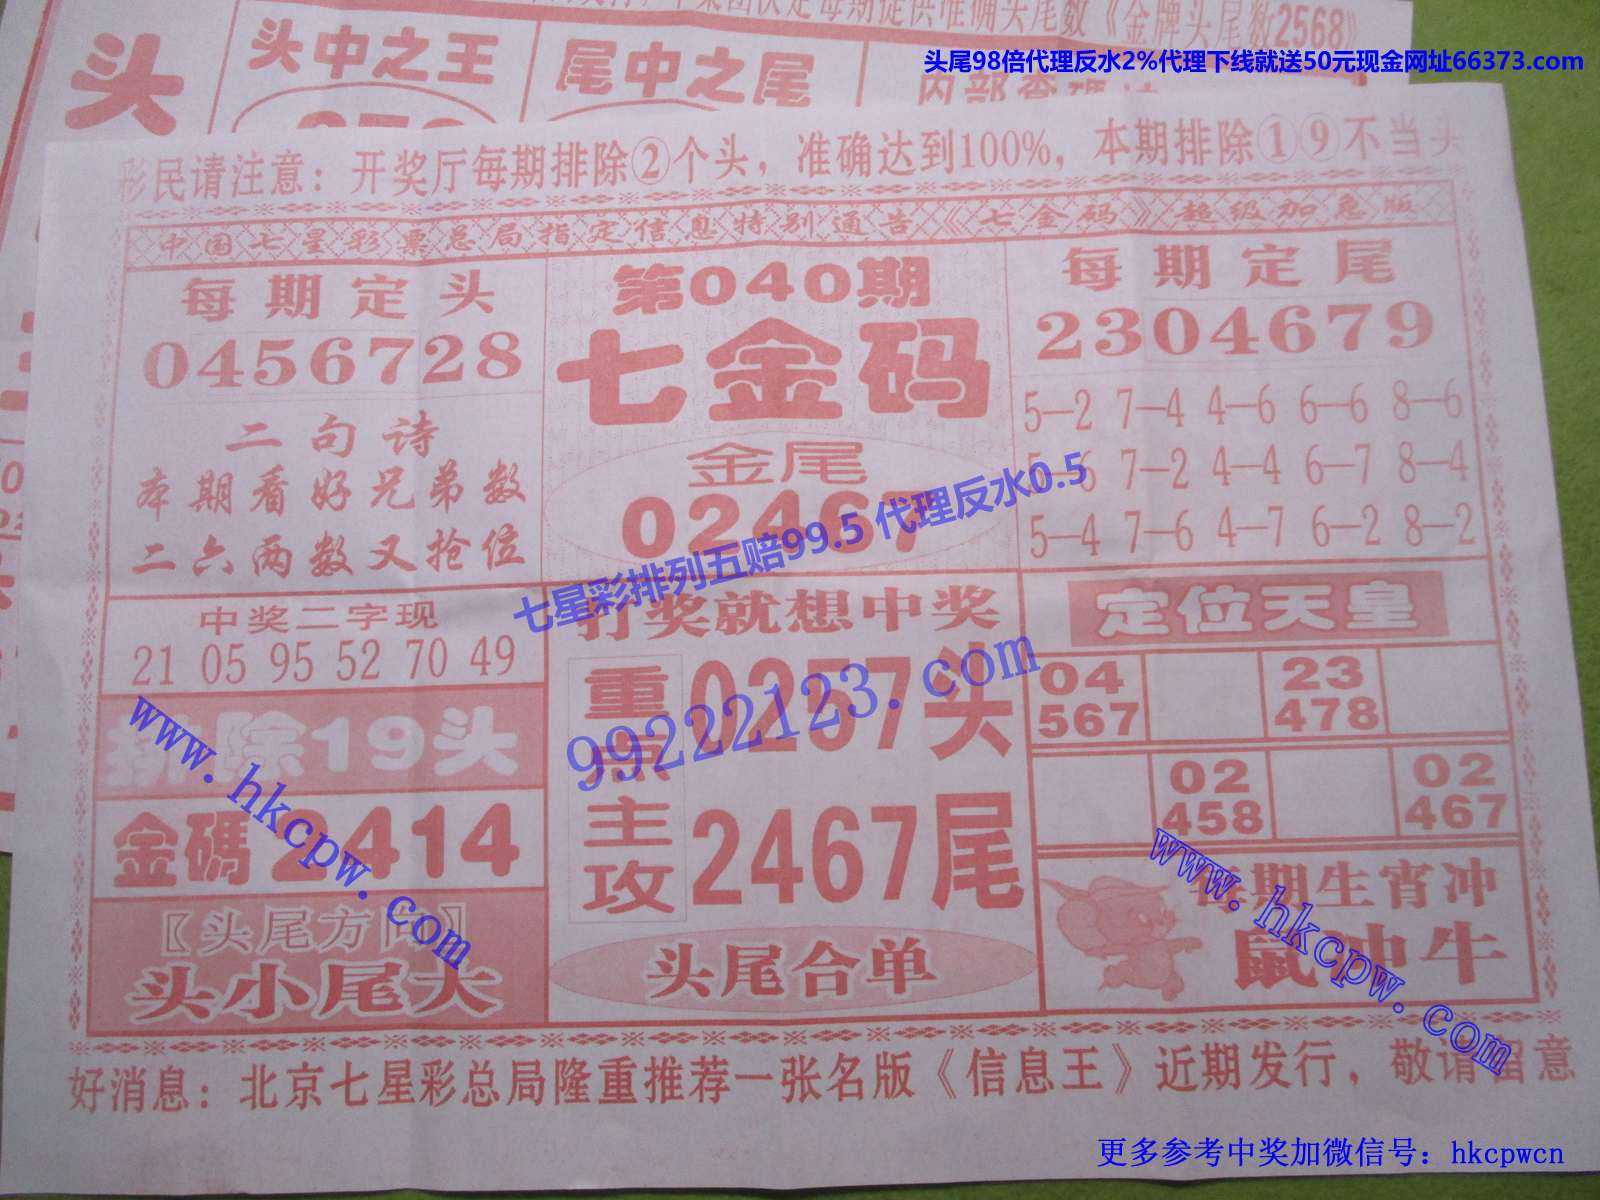 《金牌头尾数2568》
头尾98倍代理反水2%代理下线就送50元现金网址66373.com
头
头中之王
尾中之尾
彩民请注意：开奖厅每期排除②个头，准确达到100%，本期排除①⑨不当头
中国七星彩票总局指定信息特别通告《七金码》超级加急版
每期定头
0456728
二句诗
本期看好兄弟数
二六两数又抢位
第040期
七金码
金尾
02467
每期定尾
2304679
5—2 7—4 4—6 6—6 8—6
5—6 7—2 4—4 6—7 8—4
5—4 7—6 4—7 6—2 8—2
七星彩排列五赔99.5 代理反水0.5
中奖二字现
21 05 95 52 70 49
排除19头
金碼2414
〖头尾方向〗
头小尾大
打奖就想中奖
重点主攻
0257头
2467尾
头尾合单
99222123.com
定位天皇
04 567
23 478
02 458
02 467
每期生肖冲
鼠冲牛
www.hkcpw.com
www.hkcpw.com
好消息：北京七星彩总局隆重推荐一张名版《信息王》近期发行，敬请留意
更多参考中奖加微信号：hkcpwcn